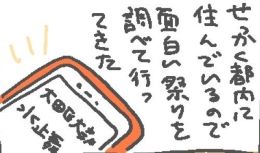 せっかく都内に
住んでいるので
面白い祭りを
調べて行っ
てきた
大田区大森
水止舞